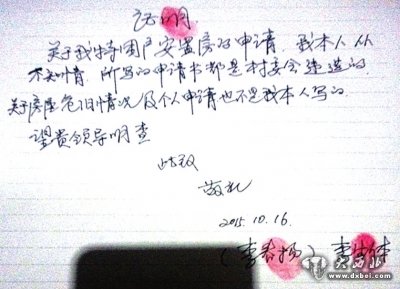 证明
关于我特困户安置房的申请，我本人从
不知情，所写的申请书都是村委会造造的，
关于房屋危旧情况及个人申请也不是我本人写的，
望贵领导明查
此致
敬礼
2015.10.16.
(李春扬) 李
大西北网
www.dxbei.com